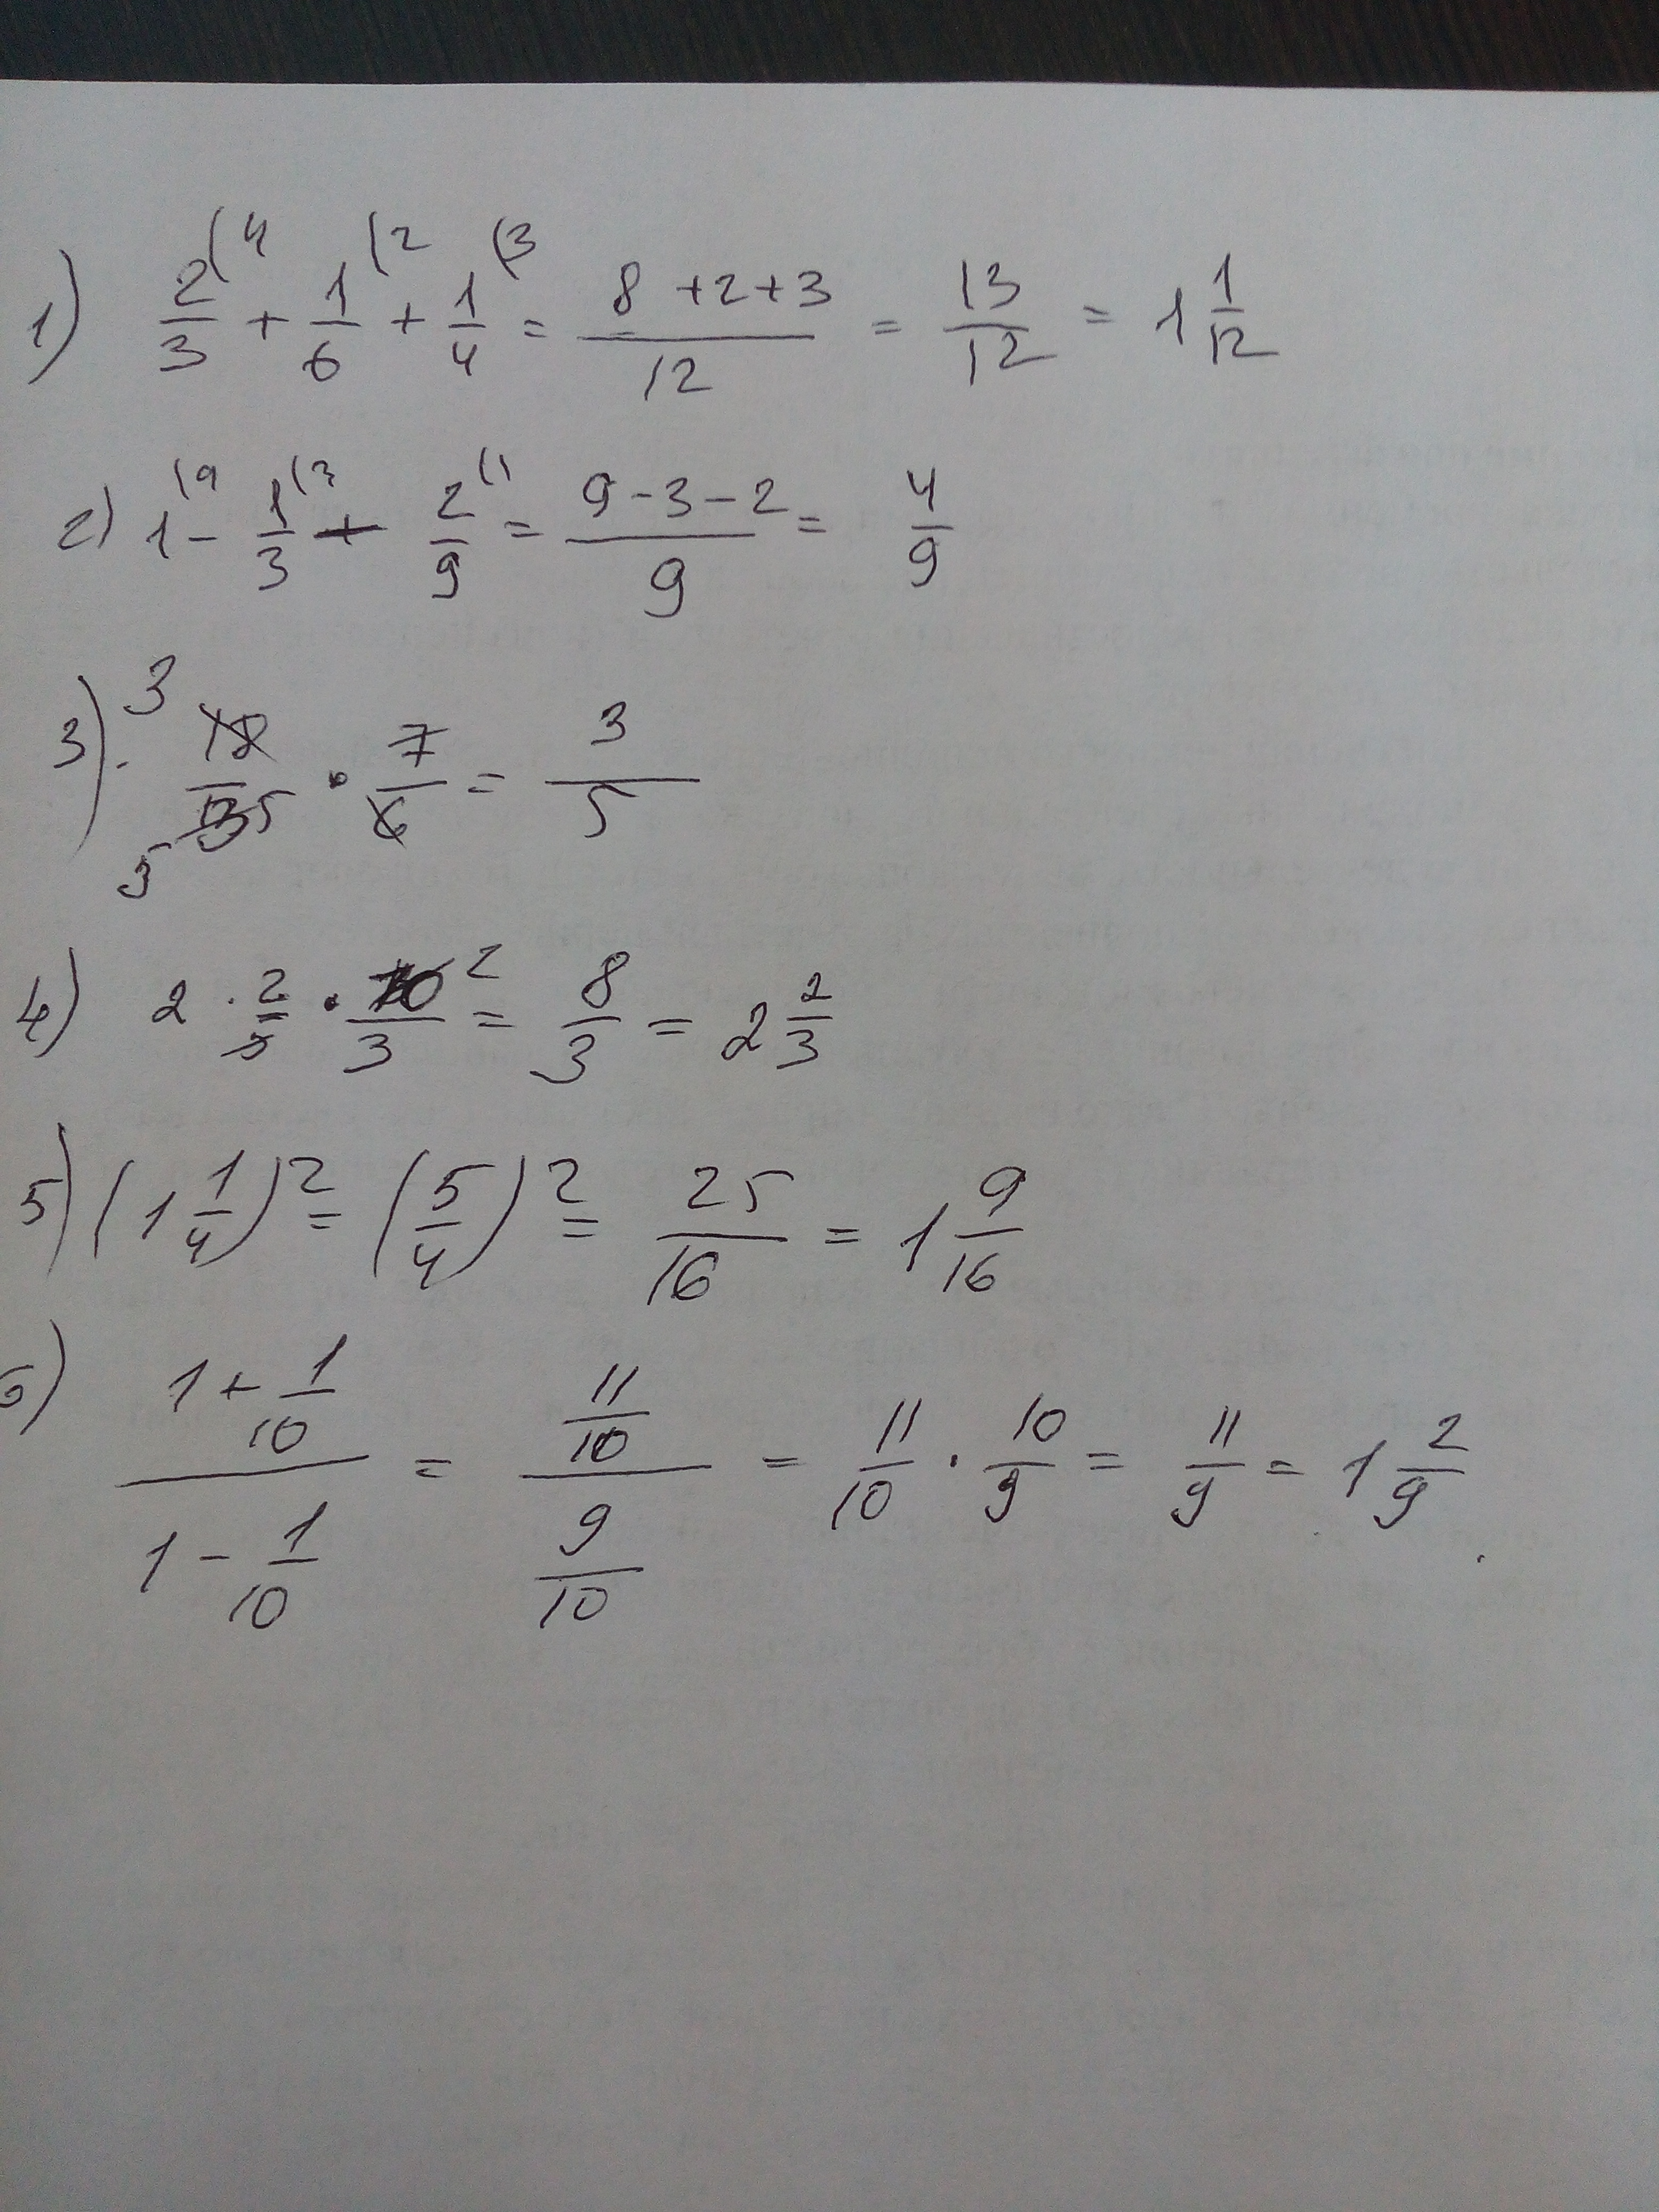 1) 2/3 (4 + 1/6 (2 + 1/4 (3 = (8+2+3)/12 = 13/12 = 1 1/12
2) 1 (9 - 1/3 (3 - 2/9 (1 = (9-3-2)/9 = 4/9
3) 3 18/35 5 · 7/6 = 3/5
4) 2 · 2/5 · 10/3 2 = 8/3 = 2 2/3
5) (1 1/4)² = (5/4)² = 25/16 = 1 9/16
6) (1+1/10)/(1-1/10) = (11/10)/(9/10) = 11/10 · 10/9 = 11/9 = 1 2/9